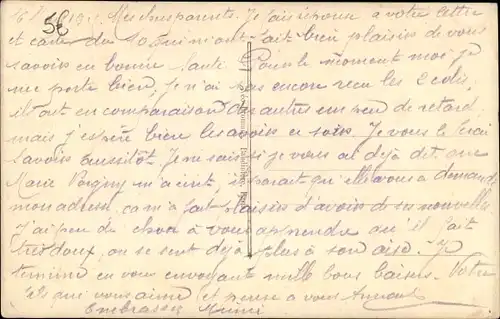 56
Mes chers parents. Je fais réponse à votre lettre
et carte du 10 qui m'ont fait bien plaisirs de vous
savoirs en bonne santé. Pour le moment moi je
me porte bien, je n'ai pas encore recu les 2 colis,
ils ont en comparaison des autres un peu de retard
mais j'espère bien les avoirs ce soirs. Je vous le ferai
savoirs aussitôt. Je ne sais si je vous ai déja dit que
Marie m'a écrit, il parait qu'elle vous a demandé
mon adresse, ca m'a fait plaisirs d'avoirs de ses nouvelles
J'ai peu de chose à vous apprendre qu'il fait
tres doux, on se sent déjà plus à son aise. Je
termine en vous envoyant mille bons baisers. Votre
fils qui vous aime et pense a vous
Embrassez